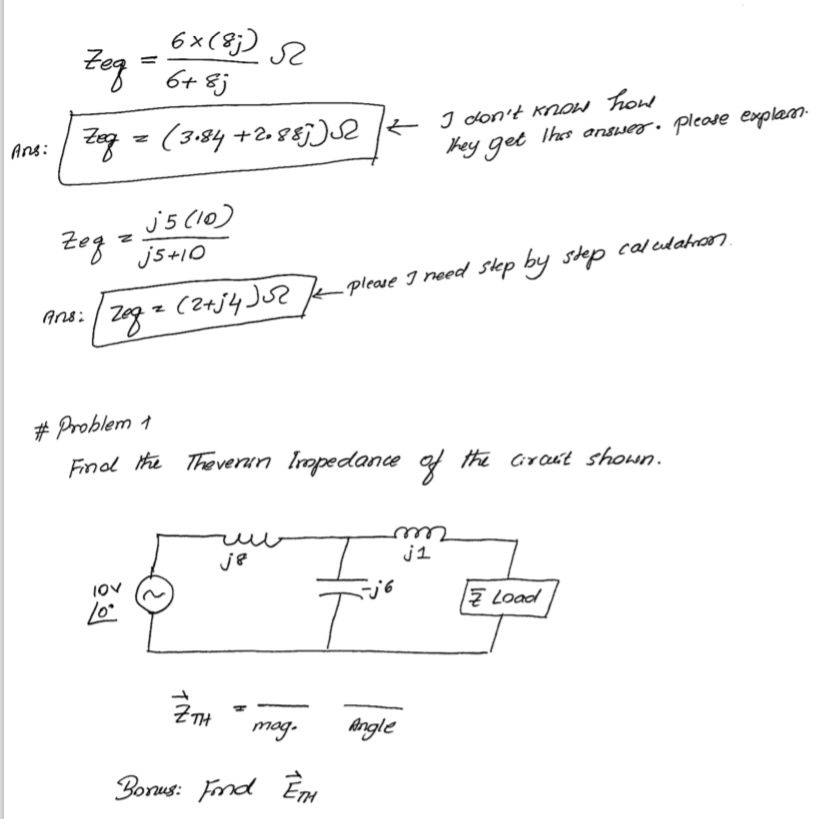 Zeq = 6×(8j) / 6+8j Ω
Ans: Zeq = (3.84 + 2.88j)Ω ← I don't know how they get this answer. please explain.
Zeq = j5(10) / j5+10
Ans: Zeq = (2+j4)Ω ← please I need step by step calculation.
# Problem 1
Find the Thevenin Impedance of the Circuit shown.
j8
j1
10V
/0°
-j6
Z Load
ZTH = mag. Angle
Bonus: Find ETH